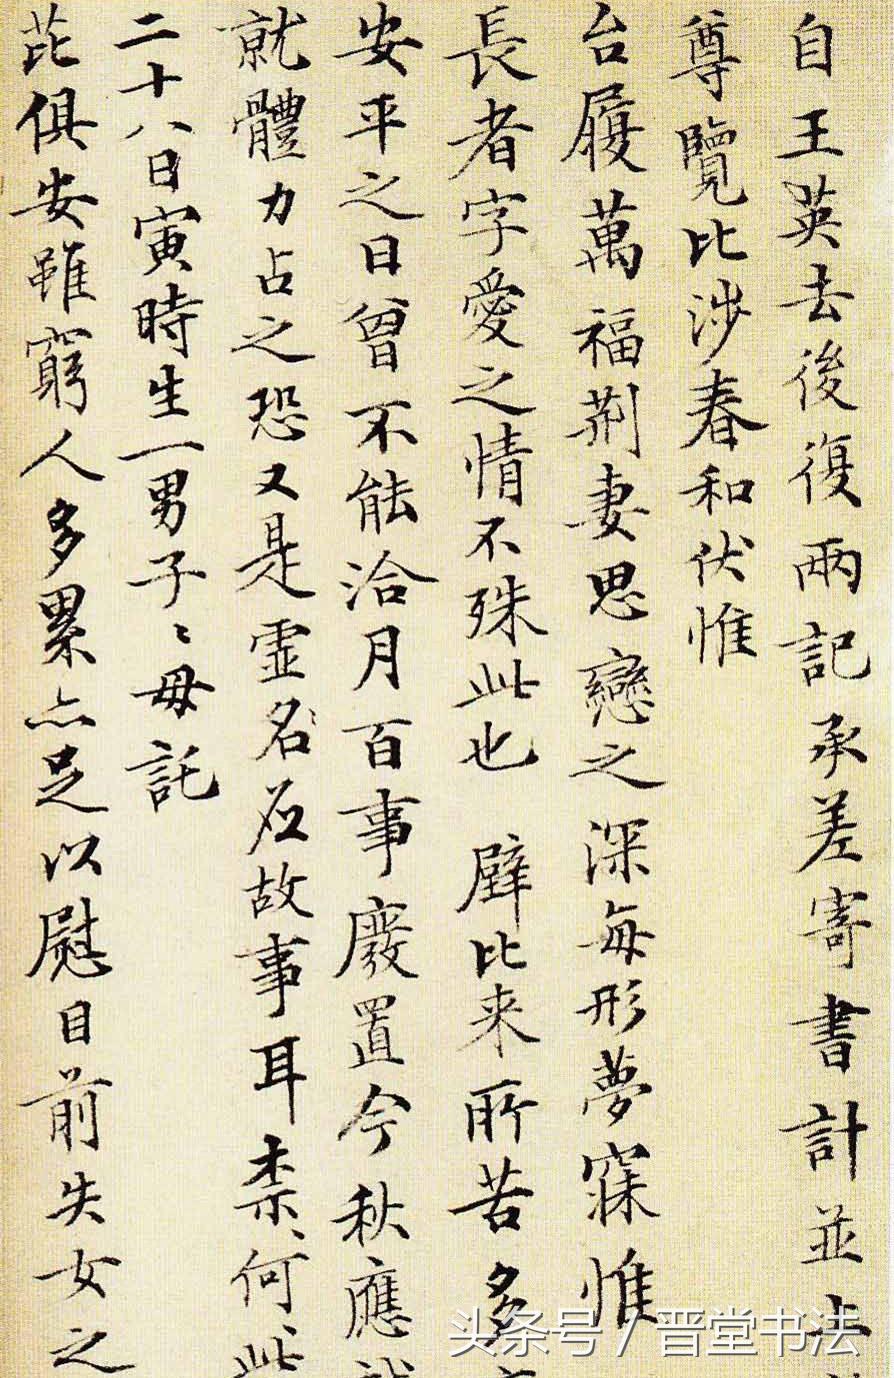 自王英去後復兩記承差寄書計並上
尊覽比涉春和伏惟
台履萬福荆妻思戀之深每形夢寐惟
長者字愛之情不殊此也 辟比来所苦多
安平之日曾不能洽月百事廢置今秋應
就體力占之恐又是虚名石故事耳柰〻何〻此
二十八日寅時生一男子〻母託
芘俱安雖窮人多累亦足以慰目前失女之
头条号 / 晋堂书法